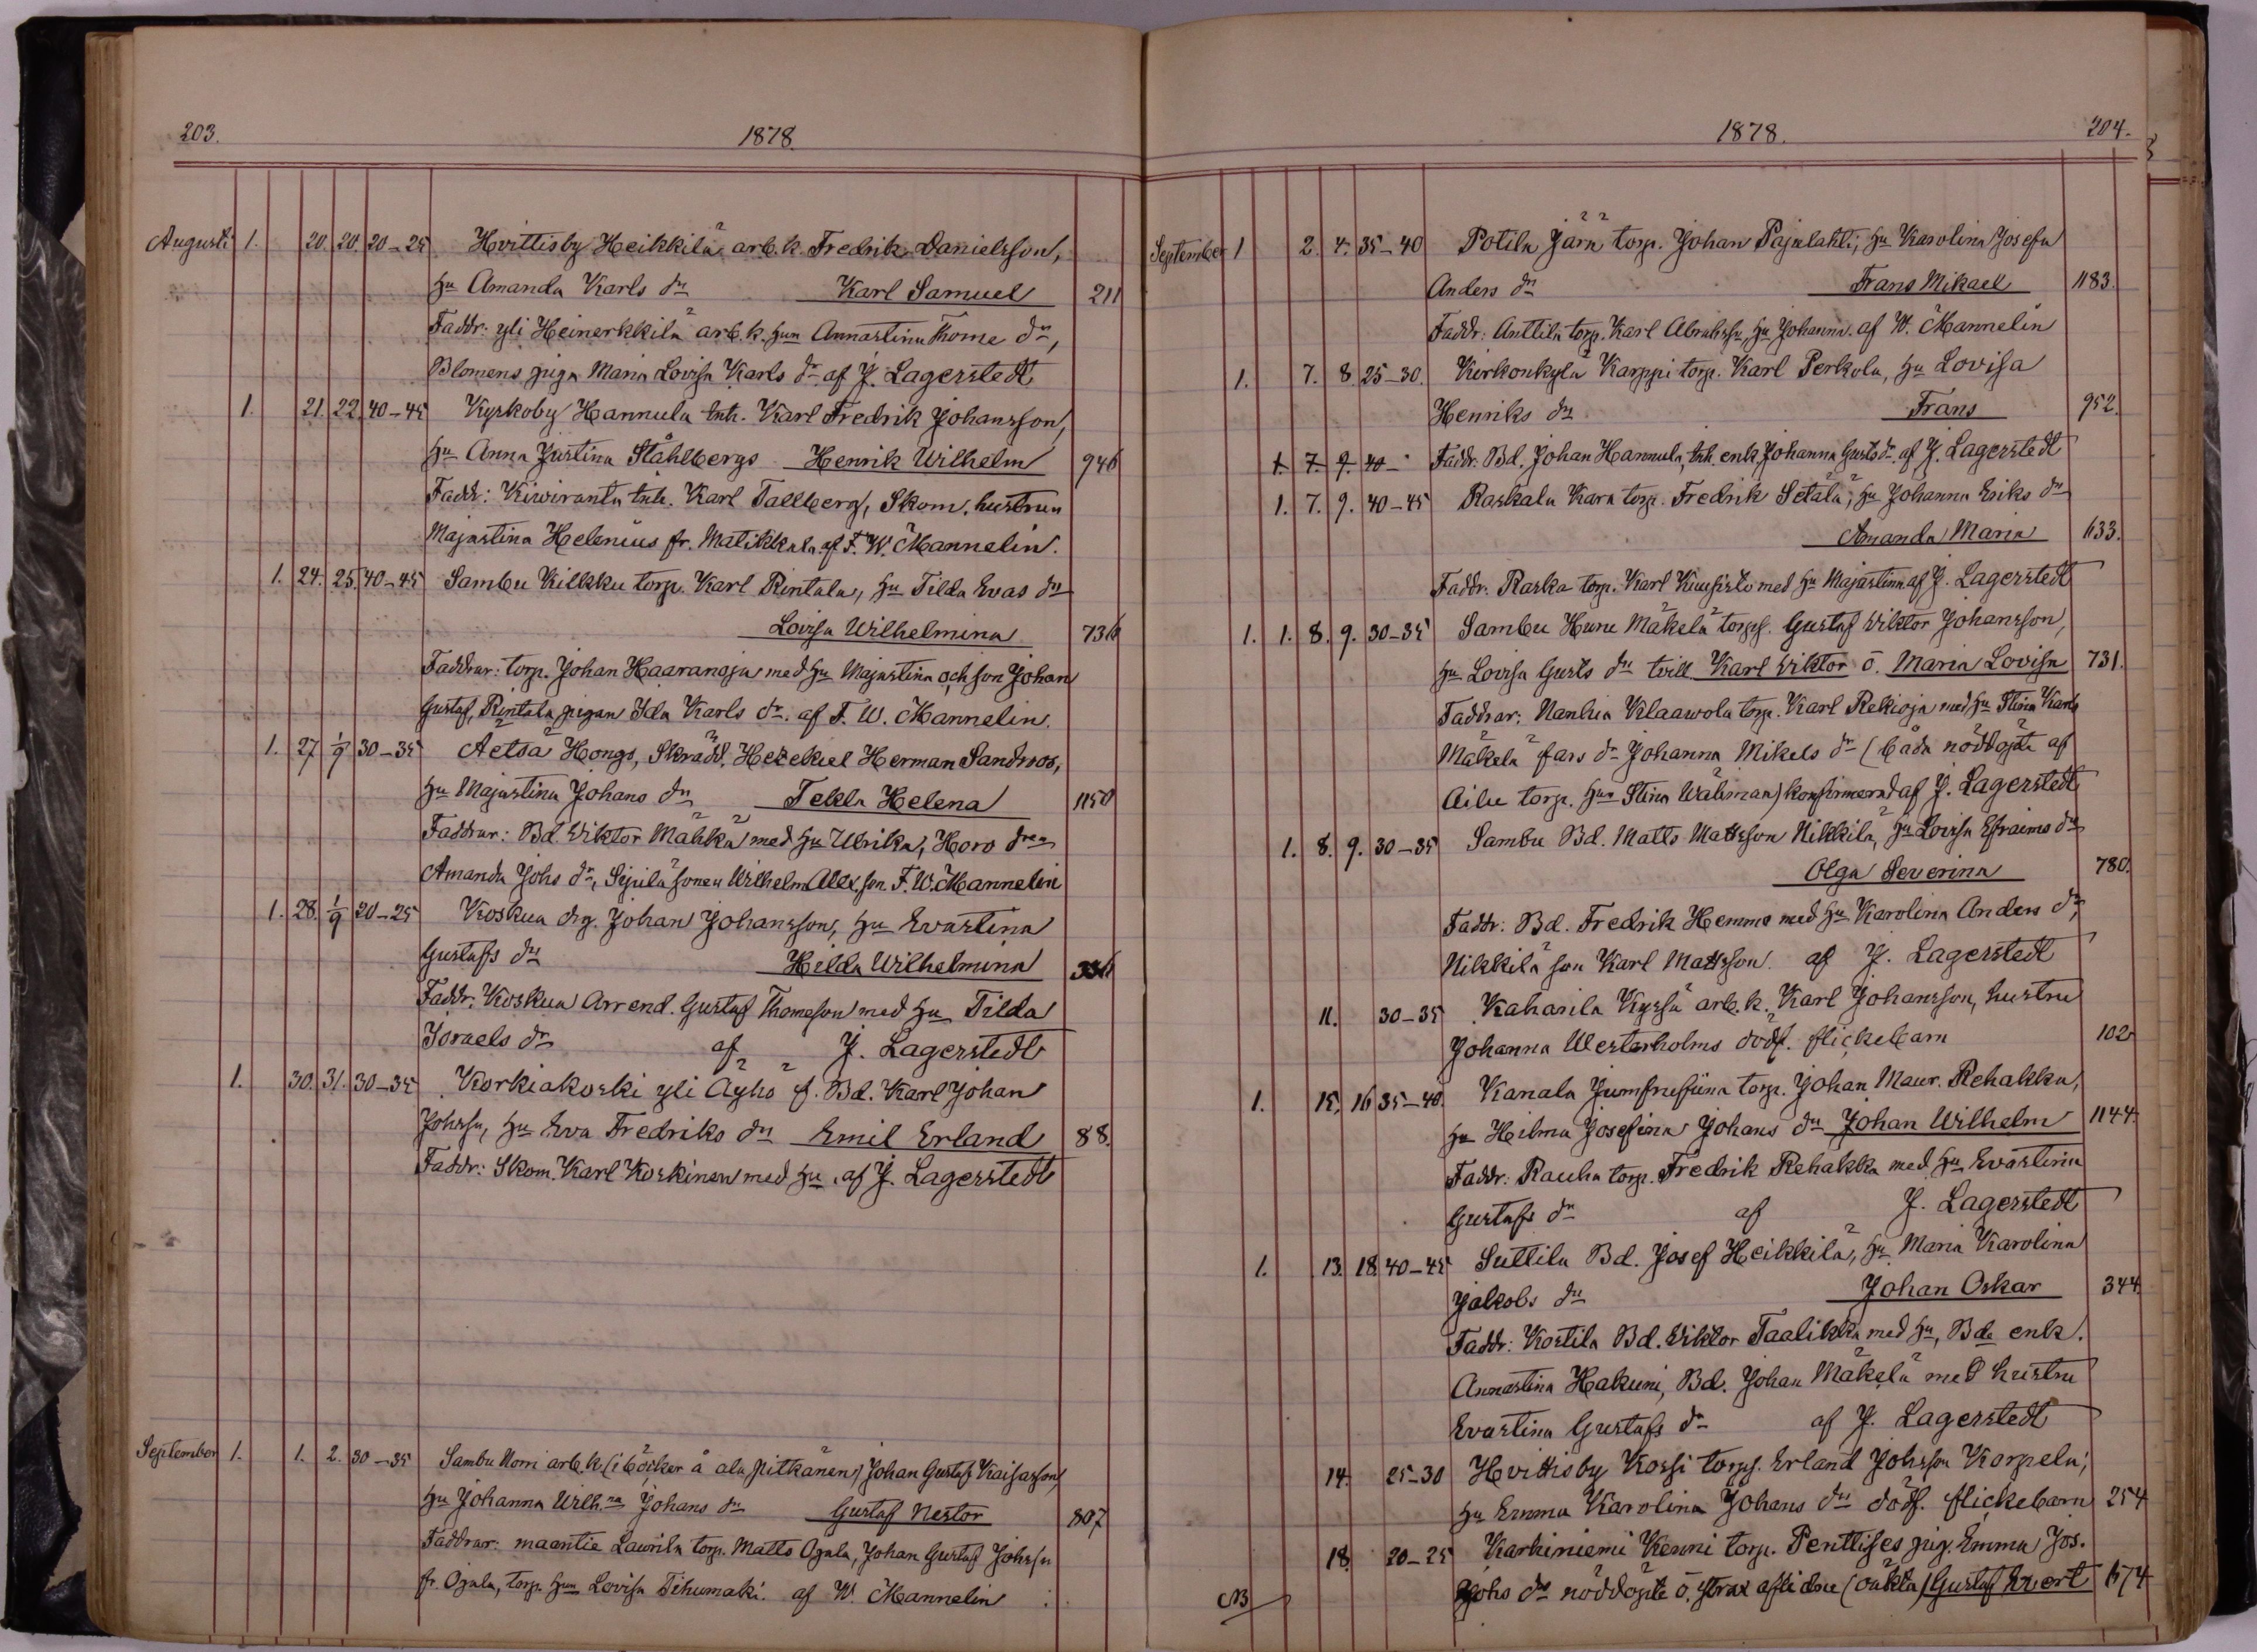 203. 1878.
Augusti 1. 20. 20. 20-25 Hvittisby Heikkilä arb.k. Fredrik Danielsson,
hu Amanda Karls dr Karl Samuel 211
Faddr: yli Heinerkkilä arb.k. hun Annastina Thome dr,
Blomens piga Maria Lovisa Karls dr. af J. Lagerstedt
1. 21. 22. 40-45 Kyrkoby Hannula inh. Karl Fredrik Johansson,
hu Anna Justina Ståhlbergs Henrik Wilhelm 946
Faddr: Kiviranta inh. Karl Tallberg, Skom. hustrun
Majastina Helenius fr. Matikkala. af F. W. Mannelin.
1. 24. 25. 40-45 Sambu Kilkku torp. Karl Rintala, hu Tilda Evas dr
Lovisa Wilhelmina 736
Faddrar: torp. Johan Haaranoja med hu Majastina och son Johan
Gustaf, Rintala pigan Ida Karls dr. af F. W. Mannelin.
1. 27. 1/9 30-35 Aetsä Hongo, Skrädd. Hezekiel Herman Sandroos,
hu Majastina Johans dr Tekla Helena 1150
Faddrar: Bd. Viktor Mähkä med hu Ulrika, Horo dren
Amanda Johs dr, Sipilä sonen Wilhelm Alex.son. F. W. Mannelin
1. 28. 1/9 20-25 Koskua drg. Johan Johansson, hu Evastina
Gustafs dr Hilda Wilhelmina 336
Faddr: Koskua Arrend. Gustaf Thomeson med hu Tilda
Israels dr af J. Lagerstedt
1. 30. 31. 30-35 Korkiakoski yli Äyhö f. Bd. Karl Johan
Johssn, hu Eva Fredriks dr Emil Erland 88.
Faddr: Skom. Karl Koskinen med hu. af J. Lagerstedt
September 1. 1. 2. 30-35 Sambu Norri arb.k. (i böcker å ala Pitkänen) Johan Gustaf Kaisasson,
hu Johanna Wilh.na Johans dr Gustaf Nestor 807
Faddrar: maantie Laurila torp. Matts Ojala, Johan Gustaf Johssn
fr. Ojala, torp. hun Lovisa Tihumaki. af W. Mannelin
1878. 204.
September 1 2. 4. 35-40 Potila Jära torp. Johan Pajulahti, hu Karolina Josefa
Anders dr Frans Mikael 1183.
Faddr: Anttila torp. Karl Abrahssn, hu Johanna. af W. Mannelin
1. 7. 8 25-30. Kirkonkylä Karppi torp. Karl Perkola, hu Lovisa
Henriks dr Frans 952.
1. 7. 9. 40- Faddr: Bd. Johan Hannula, inh. enk. Johanna Gusts dr. af J. Lagerstedt
1. 7. 9. 40-45 Raskala Kara torp. Fredrik Setälä, hu Johanna Eriks dr
Amanda Maria 633.
Faddr: Raska torp. Karl Kuusisto med hu Majastina af J. Lagerstedt
1. 1. 8. 9. 30-35 Sambu Huru Mäkelä torps. Gustaf Viktor Johansson,
hu Lovisa Gusts dr tvill Karl Viktor o. Maria Lovisa 731.
Faddrar: Nanhia Klaawola torp. Karl Rekioja med hu Stina Karls
Mäkelä fars dr Johanna Mikels dr (båda nöddöpte af
Ailu torp. hun Stina Wallman) konfirmerad af J. Lagerstedt
1. 8. 9. 30-35 Sambu Bd. Matts Mattsson Nikkilä, hu Lovisa Efraims dr
Olga Severina 780.
Faddr: Bd. Fredrik Hemmo med hu Karolina Anders dr,
Nikkilä son Karl Mattsson. af J. Lagerstedt
11. 30-35 Kaharila Kyssä arb.k. Karl Johansson, hustru
Johanna Westerholms dödf. flickebarn 102
1. 15. 16 35-40. Kanala Jumfrusüna torp. Johan Maur. Rehakka,
hu Hilma Josefina Johans dr Johan Wilhelm 1144.
Faddr: Rauha torp. Fredrik Rehakka med hu Evastina
Gustafs dr af J. Lagerstedt
1. 13. 18. 40-45 Suttila Bd. Josef Heikkilä, hu Maria Karolina
Jakobs dr Johan Oskar 344.
Faddr: Kostila Bd. Viktor Taalikka med hu, Bde enk.
Annastina Hakuni, Bd. Johan Mäkelä med hustru
Evastina Gustafs dr af J. Lagerstedt
14. 25-30 Hvittisby Kossi torps. Erland Johsson Korpela,
hu Emma Karolina Johans dr dödf. flickebarn 254
18. 20-25 Karhiniemi Kenni torp. Penttises pig. Emma Jos.
Johs dr nöddöpte o. strax aflidne (oäkta) Gustaf Evert 674
NB